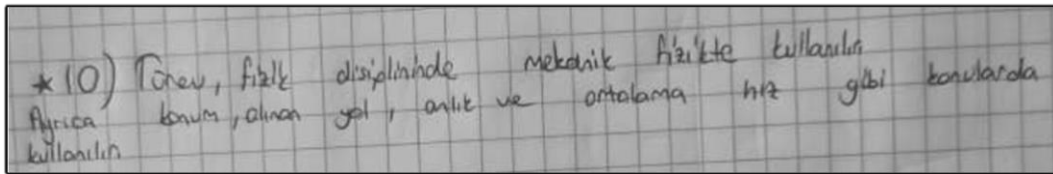 * 10) Türev, fizik disiplininde mekanik fizikte kullanılır
Ayrıca konum, alınan yol, anlık ve ortalama hız gibi konularda
kullanılır